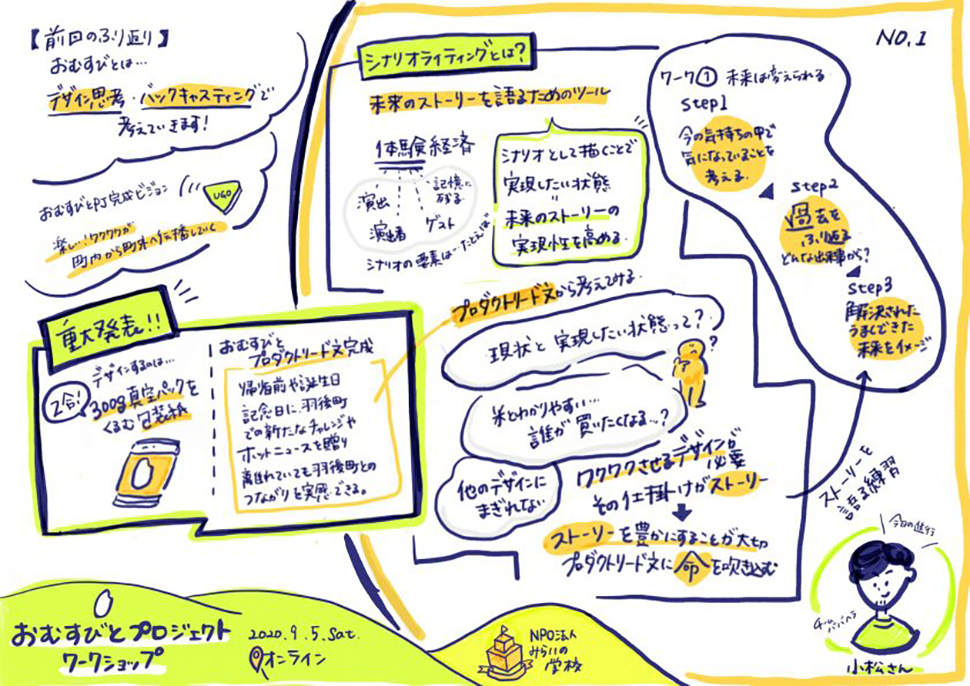 【前回のふり返り】
おむすびとは…
デザイン思考・バックキャスティングで
考えていきます！
おむすびとPJ完成ビジョン
UGO
楽しい！ワクワクが
町内から町外へ伝播していく
重大発表!!
デザインするのは…
2合！
300g真空パックを
くるむ包装紙
おむすびと
プロダクトリード文完成
帰省前や誕生日
記念日に、羽後町
での新たなチャレンジや
ホットニュースを贈り
離れていても羽後町との
つながりを実感できる。
NO.1
シナリオライティングとは？
未来のストーリーを語るためのツール
体験経済
演出
記憶に
残る
演出者
ゲスト
シナリオの要素は…たとえば
シナリオとして描くことで
実現したい状態
=
未来のストーリーの
実現性を高める
ワーク① 未来は考えられる
step1
今の気持ちの中で
気になっていることを
考える
step2
過去を
ふり返る
どんな出来事から？
step3
解決された
うまくできた
未来をイメージ
プロダクトリード文から考えてみる
現状と実現したい状態って？
?
米とわかりやすい…
誰が買いたくなる…？
他のデザインに
まぎれない
ワクワクさせるデザインが
必要
その仕掛けがストーリー
ストーリーを豊かにすることが大切
プロダクトリード文に命を吹き込む
ストーリーを
語る練習
今日の進行
小松さん
おむすびとプロジェクト
ワークショップ
2020.9.5.Sat.
オンライン
NPO法人
みらいの
学校